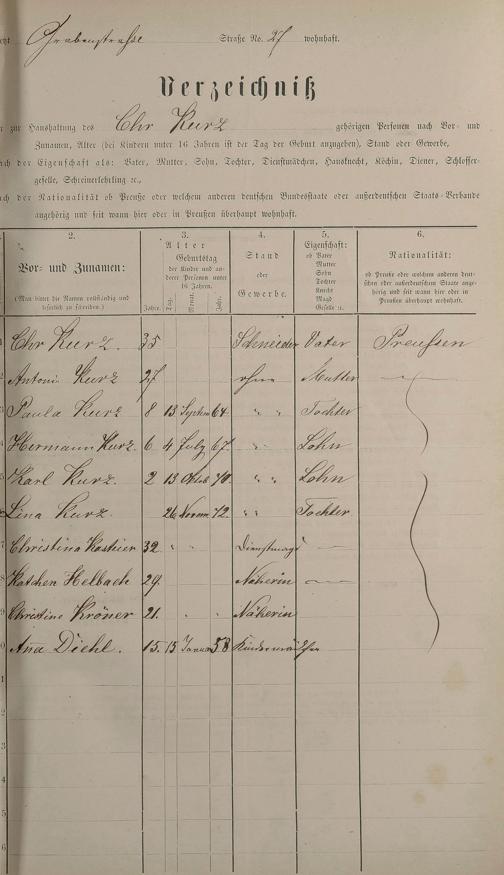 Grabenstraße Straße No. 27 wohnhaft.
Verzeichniß
zur Haushaltung des Chr Kurz gehörigen Personen nach Vor- und
Zunamen, Alter (bei Kindern unter 16 Jahren ist der Tag der Geburt anzugeben), Stand oder Gewerbe,
der Eigenschaft als: Vater, Mutter, Sohn, Tochter, Dienstmädchen, Hausknecht, Köchin, Diener, Schlosser-
geselle, Schreinerlehrling ꝛc.,
der Nationalität ob Preuße oder welchem anderen deutschen Bundesstaate oder außerdeutschen Staats-Verbande
angehörig und seit wann hier oder in Preußen überhaupt wohnhaft.
2.
Vor- und Zunamen:
(Man bittet die Namen vollständig und
leserlich zu schreiben.)
3.
Alter
Geburtstag
der Kinder und an-
derer Personen unter
16 Jahren.
Jahre. Tag. Monat. Jahr.
4.
Stand
oder
Gewerbe.
5.
Eigenschaft:
ob Vater
Mutter
Sohn
Tochter
Knecht
Magd
Geselle ꝛc.
6.
Nationalität:
ob Preuße oder welchem anderen deut-
schen oder außerdeutschen Staate ange-
hörig und seit wann hier oder in
Preußen überhaupt wohnhaft.
Chr Kurz. 35 Schneider Vater Preussen
Antoni Kurz 27 ohne Mutter —
Paula Kurz 8 13 Septem 64. " " Tochter
Hermann Kurz. 6 4 July 67. " Sohn
Karl Kurz. 2 13 Oktob 70. " " Sohn
Lina Kurz. 26 Novem 72. " " Tochter.
7 Christina 32 " " Dienstmagd —
8 Katchen Helbach 29. Näherin —
9 Christine Kröner 21. " " Näherin
0 Ana Diehl. 15. 15 Januar 58 Kindermädchen
1
2
3
4
5
6